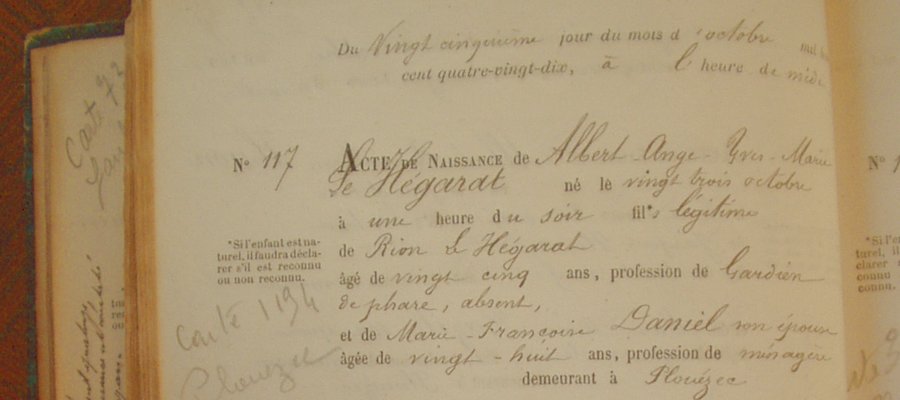 Du Vingt cinquième jour du mois d'octobre mil
cent quatre-vingt-dix, à l'heure de midi
N° 117 ACTE DE NAISSANCE de Albert-Ange-Yves-Marie
Le Hégarat né le vingt trois octobre
à une heure du soir fil*s légitime
de Rion Le Hégarat
âgé de vingt cinq ans, profession de Gardien
de phare, absent,
et de Marie-Françoise Daniel son épouse
âgée de vingt-huit ans, profession de ménagère
demeurant à Plouézec
*Si l'enfant est na-
turel, il faudra décla-
rer s'il est reconnu
ou non reconnu.
Carte 1194
Plouézec
Carte 92
N°
*Si l'en
turel, il
clarer
connu
connu.